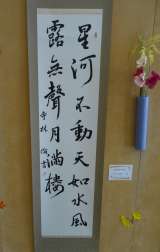 星河不動天如水風
露無聲月満楼